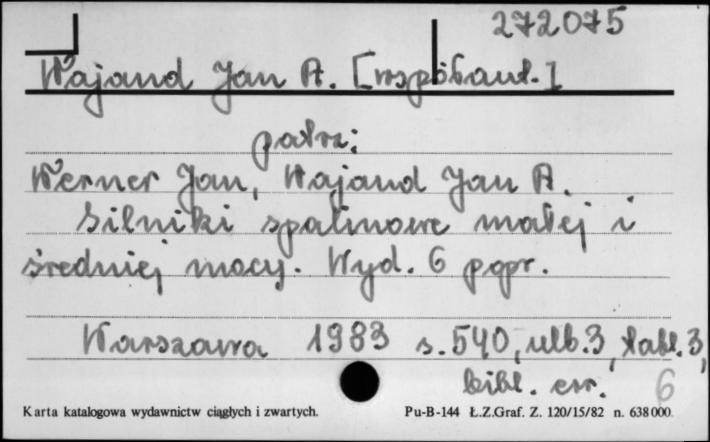 272075
Wajand Jan A. [współaut.]
patrz:
Werner Jan, Wajand Jan A.
Silniki spalinowe małej i
średniej mocy. Wyd. 6 popr.
Warszawa 1983 s. 540, ulb. 3, tabl. 3,
bibl. err. 6
Karta katalogowa wydawnictw ciągłych i zwartych. Pu-B-144 Ł.Z.Graf. Z. 120/15/82 n. 638000.